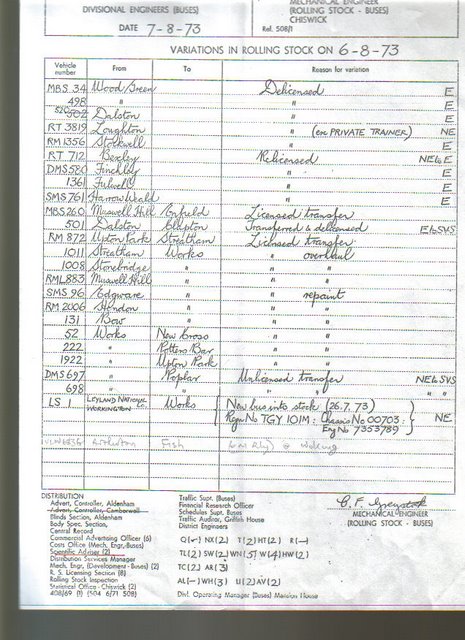 DIVISIONAL ENGINEERS (BUSES)
MECHANICAL ENGINEER
(ROLLING STOCK - BUSES)
CHISWICK
DATE 7-8-73 Ref. 508/1
VARIATIONS IN ROLLING STOCK ON 6-8-73
Vehicle number From To Reason for variation
MBS 34 Wood Green Delicensed E
498 " " E
502 Dalston " E
RT 3819 Loughton " (ex PRIVATE TRAINER) NE
RM 1356 Stockwell " E
RT 712 Bexley Relicensed NE to E
DMS 580 Finchley " E
1361 Fulwell " E
SMS 761 Harrow Weald " E
MBS 260 Muswell Hill Enfield Licensed transfer
501 Dalston Clapton Transferred & delicensed E to SVS
RM 872 Upton Park Streatham Licensed transfer
1011 Streatham Works " overhaul
1008 Stonebridge " " "
RML 883 Muswell Hill " " "
SMS 96 Edgware " " repaint
RM 2006 Hendon " " "
131 Bow " " "
52 Works New Cross " "
222 " Potters Bar " "
1922 " Upton Park " "
DMS 697 " Poplar Unlicensed transfer NE to SVS
698 " " " " " "
LS 1 LEYLAND NATIONAL Co. WORKINGTON Works New bus into stock (26.7.73)
Regn No TGY 101M : Chassis No 00703 : NE
Eng No 7353789
Fish
DISTRIBUTION
Advert, Controller, Aldenham
Advert, Controller, Camberwell
Blinds Section, Aldenham
Body Spec. Section,
Central Record
Commercial Advertising Officer (6)
Costs Office (Mech. Engr. Buses)
Scientific Adviser (2)
Distribution Services Manager
Mech. Engr, (Development - Buses) (2)
R. S. Licensing Section (8)
Rolling Stock Inspection
Statistical Office - Chiswick (2)
408/69 (1) (504 6/71 508)
Traffic Supt. (Buses)
Financial Research Officer
Schedules Supt. Buses
Traffic Auditor, Griffith House
District Engineers
Q(-) NX(2) T(2) HT(2) R(-)
TL(2) SW(2) WN(5) W(4) HW(2)
TC(2) AR(3)
AL(-) WH(3) U(2) AV(2)
Divl. Operating Manager (Buses) Mansion House
MECHANICAL ENGINEER
(ROLLING STOCK - BUSES)